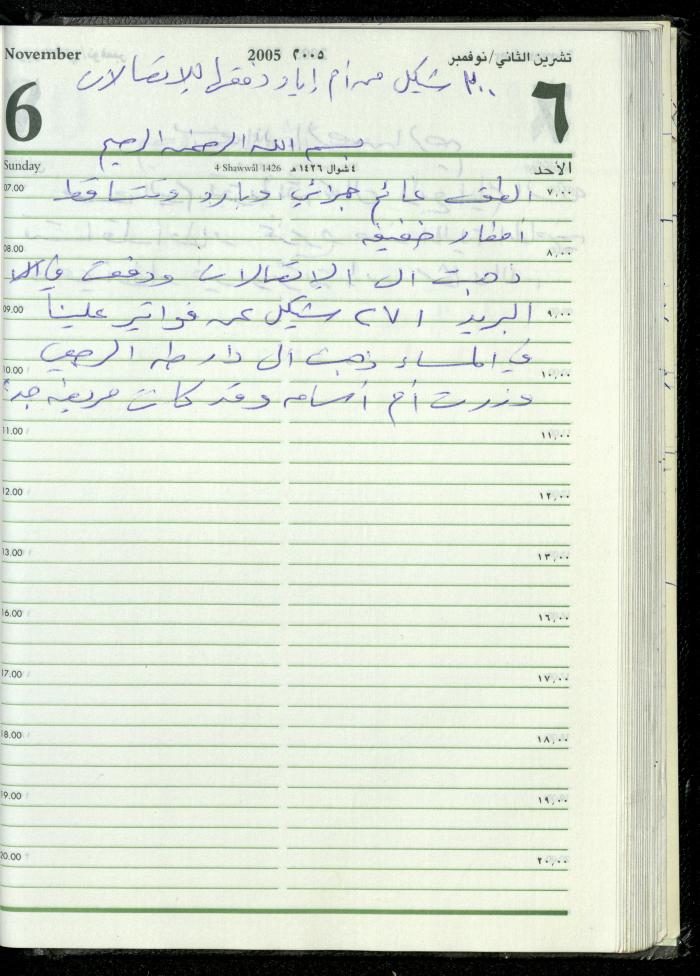 November 2005 ٢٠٠٥ تشرين الثاني/نوفمبر
٣٠٠ شيكل من أم إياد دفعتها للإتصالات
6 ٦
بسم الله الرحمن الرحيم
Sunday 4 Shawwâl 1426 ٤ شوال ١٤٢٦ هـ الأحد
07.00 الطقس غائم جزائي وبارد وتتساقط ٧,٠٠
أمطار خفيفه
08.00 ٨,٠٠
ذهبت الى الإتصالات ودفعت في
09.00 البريد ٢٧١ شيكل عن فواتير علينا ٩,٠٠
في المساء ذهبت الى دار طه
10.00 ١٠,٠٠
وزرت أم أسامه وقد كانت مريضه جداً
11.00 ١١,٠٠
12.00 ١٢,٠٠
13.00 ١٣,٠٠
16.00 ١٦,٠٠
17.00 ١٧,٠٠
18.00 ١٨,٠٠
19.00 ١٩,٠٠
20.00 ٢٠,٠٠